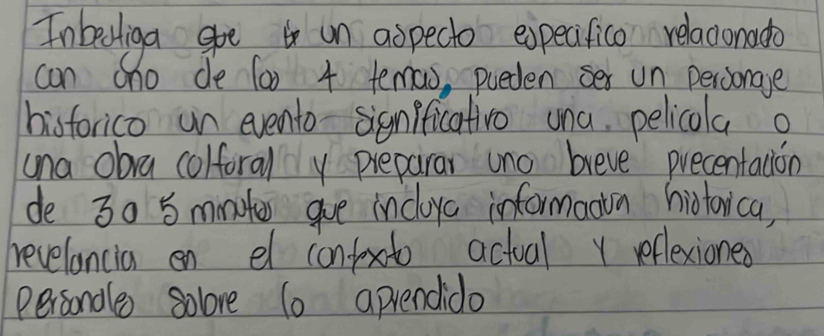 Inbestiga que un aspecto especifico relacionado
con uno de los 4 temas, pueden ser un personaje
historico un evento significativo una pelicola o
una obra coltoral y preparar uno breve precentación
de 3 o 5 minutos que incluya información historica,
revelancia en el contexto actual y reflexiones
personales sobre lo aprendido